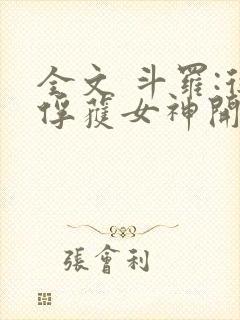 全文 斗羅:從
俘獲女神開
張會利